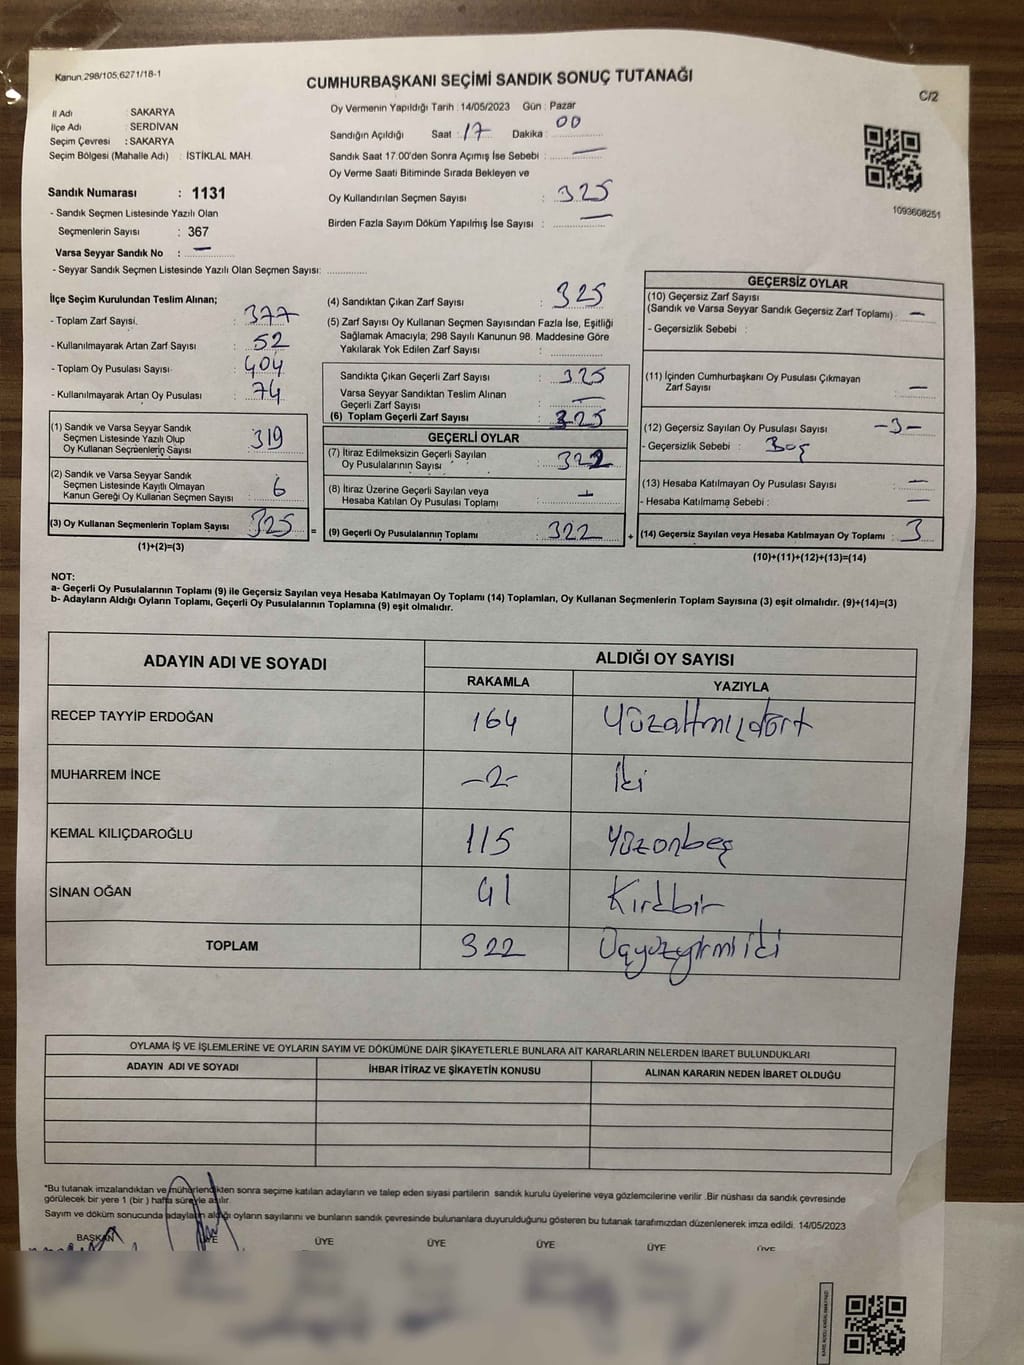 Kanun.298/105,6271/18-1
CUMHURBAŞKANI SEÇİMİ SANDIK SONUÇ TUTANAĞI
C/2
İl Adı : SAKARYA
İlçe Adı : SERDİVAN
Seçim Çevresi : SAKARYA
Seçim Bölgesi (Mahalle Adı) : İSTİKLAL MAH.
Oy Vermenin Yapıldığı Tarih : 14/05/2023 Gün : Pazar
Sandığın Açıldığı Saat : 17 Dakika : 00
Sandık Saat 17.00'den Sonra Açmış İse Sebebi : —
Oy Verme Saati Bitiminde Sırada Bekleyen ve
Oy Kullandırılan Seçmen Sayısı : 325
Birden Fazla Sayım Döküm Yapılmış İse Sayısı : —
1093608251
Sandık Numarası : 1131
- Sandık Seçmen Listesinde Yazılı Olan
Seçmenlerin Sayısı : 367
Varsa Seyyar Sandık No : —
- Seyyar Sandık Seçmen Listesinde Yazılı Olan Seçmen Sayısı: ..............
İlçe Seçim Kurulundan Teslim Alınan;
- Toplam Zarf Sayısı. : 377
- Kullanılmayarak Artan Zarf Sayısı : 52
- Toplam Oy Pusulası Sayısı : 404
- Kullanılmayarak Artan Oy Pusulası : 74
(1) Sandık ve Varsa Seyyar Sandık
Seçmen Listesinde Yazılı Olup
Oy Kullanan Seçmenlerin Sayısı : 319
(2) Sandık ve Varsa Seyyar Sandık
Seçmen Listesinde Kayıtlı Olmayan
Kanun Gereği Oy Kullanan Seçmen Sayısı : 6
(3) Oy Kullanan Seçmenlerin Toplam Sayısı : 325 =
(1)+(2)=(3)
(4) Sandıktan Çıkan Zarf Sayısı : 325
(5) Zarf Sayısı Oy Kullanan Seçmen Sayısından Fazla İse, Eşitliği
Sağlamak Amacıyla; 298 Sayılı Kanunun 98. Maddesine Göre
Yakılarak Yok Edilen Zarf Sayısı : ..............
Sandıkta Çıkan Geçerli Zarf Sayısı : 325
Varsa Seyyar Sandıktan Teslim Alınan
Geçerli Zarf Sayısı : —
(6) Toplam Geçerli Zarf Sayısı : 325
GEÇERLİ OYLAR
(7) İtiraz Edilmeksizin Geçerli Sayılan
Oy Pusulalarının Sayısı : 322
(8) İtiraz Üzerine Geçerli Sayılan veya
Hesaba Katılan Oy Pusulası Toplamı : —
(9) Geçerli Oy Pusulalarının Toplamı : 322 +
GEÇERSİZ OYLAR
(10) Geçersiz Zarf Sayısı
(Sandık ve Varsa Seyyar Sandık Geçersiz Zarf Toplamı) : —
- Geçersizlik Sebebi :
(11) İçinden Cumhurbaşkanı Oy Pusulası Çıkmayan
Zarf Sayısı : —
(12) Geçersiz Sayılan Oy Pusulası Sayısı : -3-
- Geçersizlik Sebebi : Boş
(13) Hesaba Katılmayan Oy Pusulası Sayısı : —
- Hesaba Katılmama Sebebi : —
(14) Geçersiz Sayılan veya Hesaba Katılmayan Oy Toplamı : 3
(10)+(11)+(12)+(13)=(14)
NOT:
a- Geçerli Oy Pusulalarının Toplamı (9) ile Geçersiz Sayılan veya Hesaba Katılmayan Oy Toplamı (14) Toplamları, Oy Kullanan Seçmenlerin Toplam Sayısına (3) eşit olmalıdır. (9)+(14)=(3)
b- Adayların Aldığı Oyların Toplamı, Geçerli Oy Pusulalarının Toplamına (9) eşit olmalıdır.
ADAYIN ADI VE SOYADI ALDIĞI OY SAYISI
RAKAMLA YAZIYLA
RECEP TAYYİP ERDOĞAN 164 Yüzaltmışdört
MUHARREM İNCE -2- İki
KEMAL KILIÇDAROĞLU 115 Yüzonbeş
SİNAN OĞAN 41 Kırkbir
TOPLAM 322 Üçyüzyirmiiki
OYLAMA İŞ VE İŞLEMLERİNE VE OYLARIN SAYIM VE DÖKÜMÜNE DAİR ŞİKAYETLERLE BUNLARA AİT KARARLARIN NELERDEN İBARET BULUNDUKLARI
ADAYIN ADI VE SOYADI İHBAR İTİRAZ VE ŞİKAYETİN KONUSU ALINAN KARARIN NEDEN İBARET OLDUĞU
"Bu tutanak imzalandıktan ve mühürlendikten sonra seçime katılan adayların ve talep eden siyasi partilerin sandık kurulu üyelerine veya gözlemcilerine verilir .Bir nüshası da sandık çevresinde
görülecek bir yere 1 (bir ) hafta süreyle asılır.
Sayım ve döküm sonucunda adayların aldığı oyların sayılarını ve bunların sandık çevresinde bulunanlara duyurulduğunu gösteren bu tutanak tarafımızdan düzenlenerek imza edildi. 14/05/2023
BAŞKAN ÜYE ÜYE ÜYE ÜYE ÜYE ÜYE